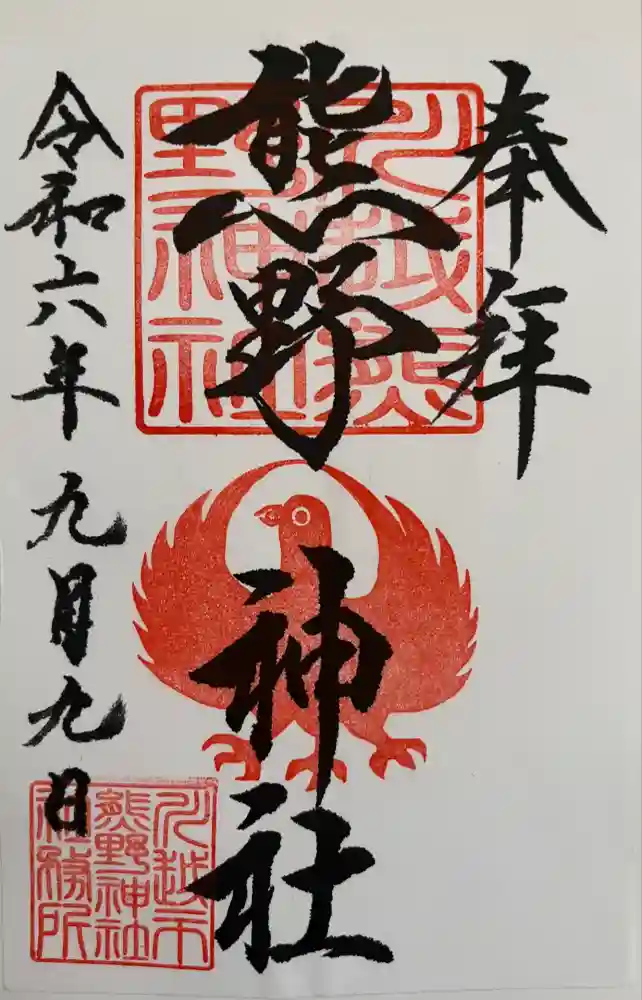 奉拝
熊野神社
令和六年九月九日
川越熊野神社
川越市熊野神社社務所